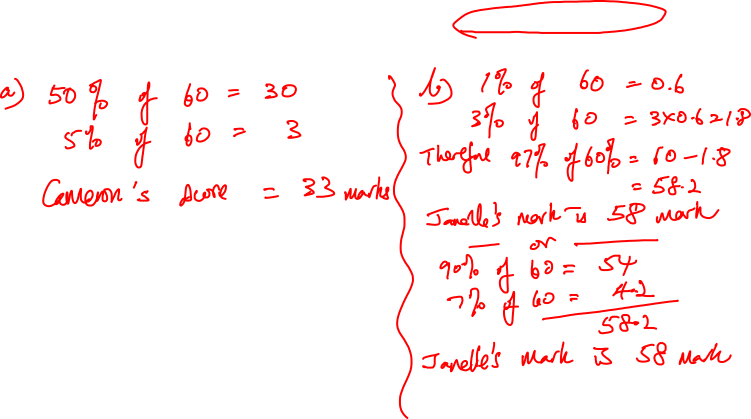 a) 50% of 60 = 30
5% of 60 = 3
Cameron's score = 33 marks
b) 1% of 60 = 0.6
3% of 60 = 3x0.6=1.8
Therefore 97% of 60% = 60-1.8
= 58.2
Janelle's mark is 58 mark
or
90% of 60 = 54
7% of 60 = 4.2
58.2
Janelle's mark is 58 mark